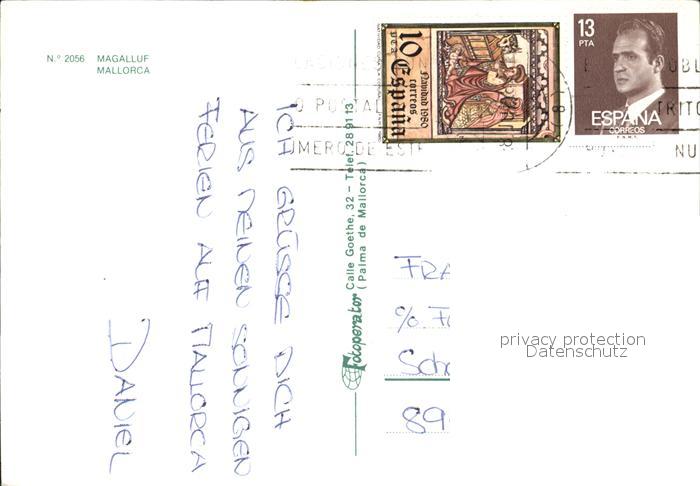 N.º 2056 MAGALLUF
MALLORCA
ICH GRÜSSE DICH
AUS MEINEN SONNIGEN
FERIEN AUF MALLORCA
DANIEL
Fotoperator Calle Goethe, 32 – Telef. 28 91 13
( Palma de Mallorca )
Navidad 1980
correos
10 PTA España
13
PTA
ESPAÑA
CORREOS
F.N.M.T.
O POSTAL
MERO DE
NU
FRA
c/o
Sch
89
privacy protection
Datenschutz